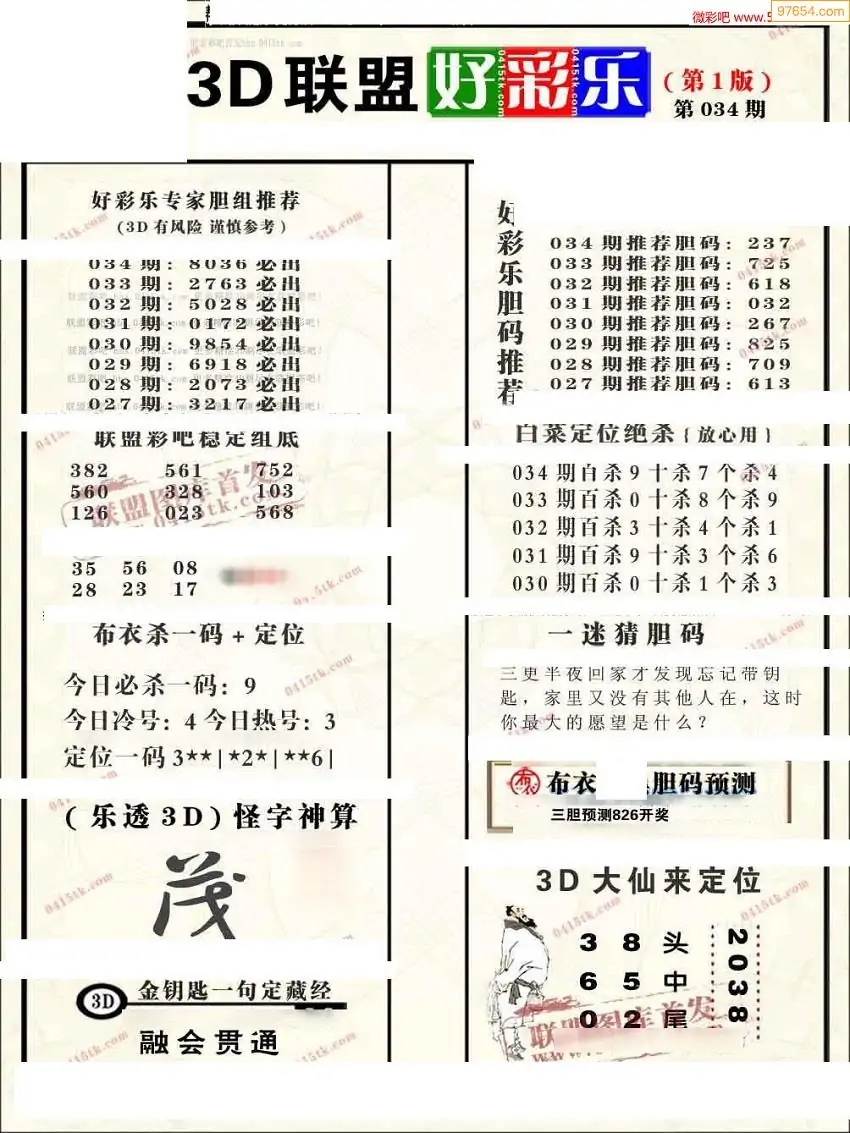 微彩吧 www.5
97654.com
3D联盟 好彩乐 (第1版)
第034期
好彩乐专家胆组推荐
(3D有风险 谨慎参考)
034期:8036必出
033期:2763必出
032期:5028必出
031期:0172必出
030期:9854必出
029期:6918必出
028期:2073必出
027期:3217必出
联盟彩吧稳定组底
382 561 752
560 328 103
126 023 568
35 56 08
28 23 17
布衣杀一码+定位
今日必杀一码:9
今日冷号:4 今日热号:3
定位一码3**|*2*|**6|
(乐透3D)怪字神算
茂
3D 金钥匙一句定藏经
融会贯通
好彩乐胆码推荐
034期推荐胆码:237
033期推荐胆码:725
032期推荐胆码:618
031期推荐胆码:032
030期推荐胆码:267
029期推荐胆码:825
028期推荐胆码:709
027期推荐胆码:613
白菜定位绝杀{放心用}
034期百杀9十杀7个杀4
033期百杀0十杀8个杀9
032期百杀3十杀4个杀1
031期百杀9十杀3个杀6
030期百杀0十杀1个杀3
一迷猜胆码
三更半夜回家才发现忘记带钥
匙，家里又没有其他人在，这时
你最大的愿望是什么？
布衣 胆码预测
三胆预测826开奖
3D大仙来定位
3 8 头
6 5 中
0 2 尾
2038
联盟图库首发
0415tk.com